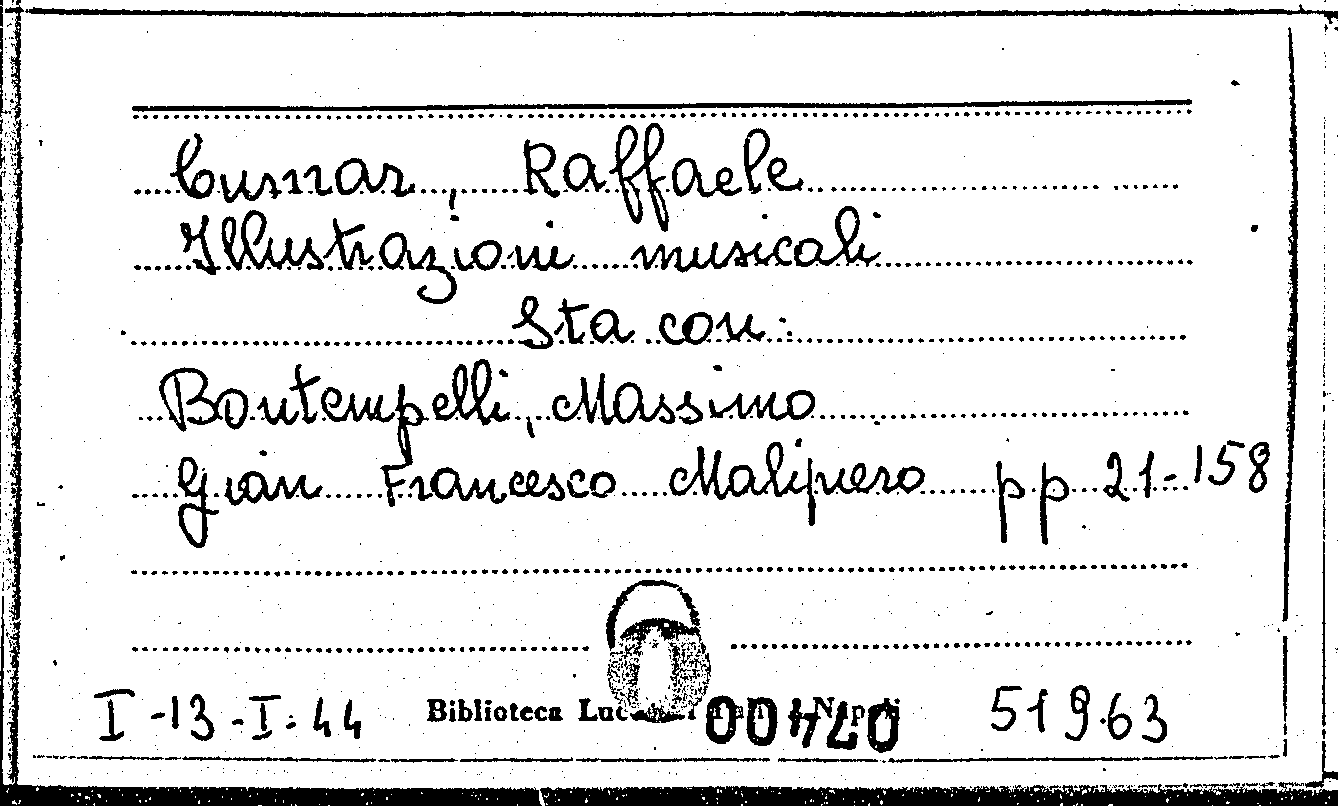 Cusnar, Raffaele
Illustrazioni musicali
Sta con:
Bontempelli, Massimo
Gian Francesco Malipiero pp 21-158
I-13-I-44 Biblioteca Napoli 51963
07400